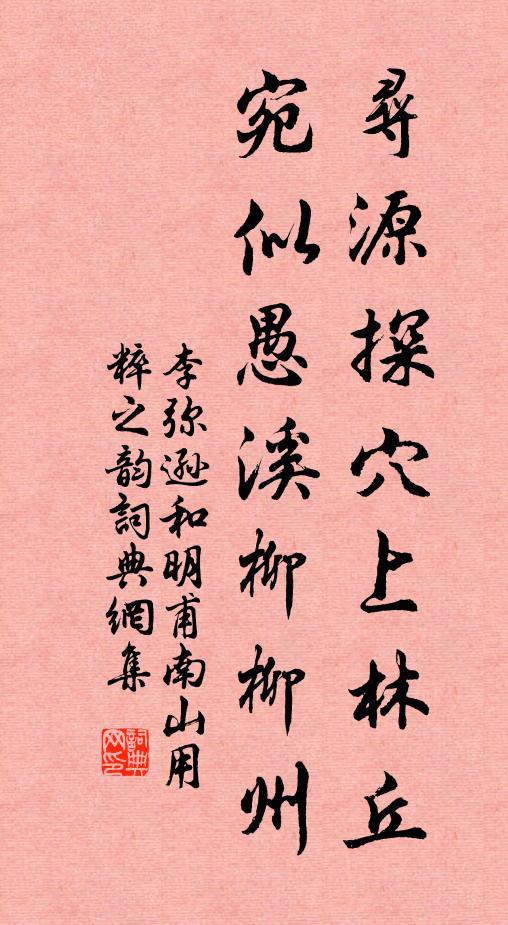 尋源探穴上林丘
宛似愚溪柳柳州
李弥遜和明甫南山用
粹之韵詞典網集
詞典网印